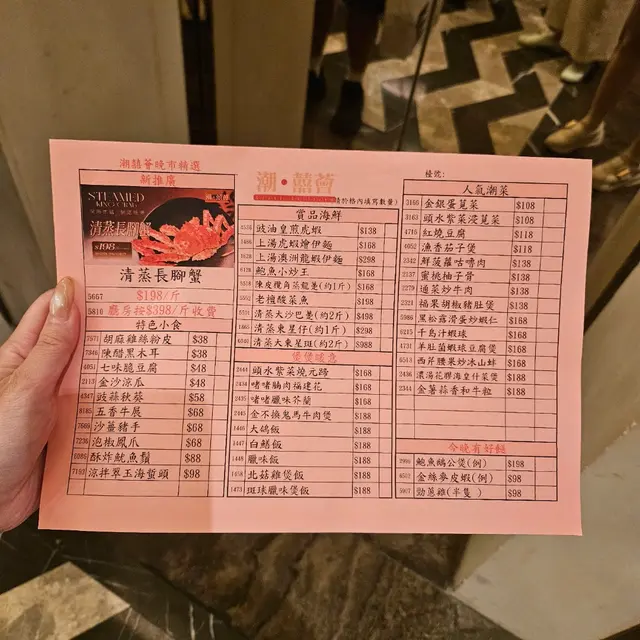 潮囍薈晚市精選
新推廣
STEAMED
KING CRAB
清蒸長腳蟹
$198
清蒸長腳蟹
5667 $198/斤
5810 廳房按$398/斤收費
特色小食
7571 胡麻雞絲粉皮 $38
7346 陳醋黑木耳 $38
4051 七味脆豆腐 $48
2113 金沙涼瓜 $48
4347 豉蒜秋葵 $58
8185 五香牛展 $68
7669 沙薑豬手 $68
7236 泡椒鳳爪 $68
6086 酥炸魷魚鬚 $88
7193 涼拌翠玉海蜇頭 $98
潮·囍薈
(請於格內填寫數量)
賞品海鮮
豉油皇煎虎蝦 $138
上湯虎蝦燴伊麵 $168
上湯澳洲龍蝦伊麵 $298
鮑魚小炒王 $168
陳皮欖角蒸龍躉(約1斤) $168
老欖酸菜魚 $198
清蒸大沙巴躉(約2斤) $498
清蒸東星仔(約1斤) $298
清蒸大東星斑(約2斤) $988
煲煲暖意
2444 頭水紫菜燒元蹄 $168
2434 啫啫腩肉福建花 $168
2435 啫啫臘味芥蘭 $168
2445 金不換鬼馬牛肉煲 $188
1446 大鴿飯 $188
1447 白鱔飯 $188
1448 臘味飯 $188
1458 北菇雞煲飯 $188
1473 斑球臘味煲飯 $188
檯號:
人氣潮菜
3166 金銀蛋莧菜 $108
3163 頭水紫菜浸莧菜 $108
4715 紅燒豆腐 $118
4052 漁香茄子煲 $118
2342 鮮菠蘿咕嚕肉 $138
2137 蜜桃柚子骨 $138
2279 通菜炒牛肉 $138
2321 福果胡椒豬肚煲 $168
5986 黑松露滑蛋炒蝦仁 $168
6215 千島汁蝦球 $168
4731 羊肚菌蝦球豆腐煲 $168
6513 西芹腰果炒冰山蚌 $168
2436 濃湯花膠海皇什菜煲 $188
2344 金薯蒜香和牛粒 $188
今晚有好餸
2996 鮑魚鵝公煲(例) $198
6557 金絲麥皮蝦(例) $98
5907 勁蔥雞(半隻) $98